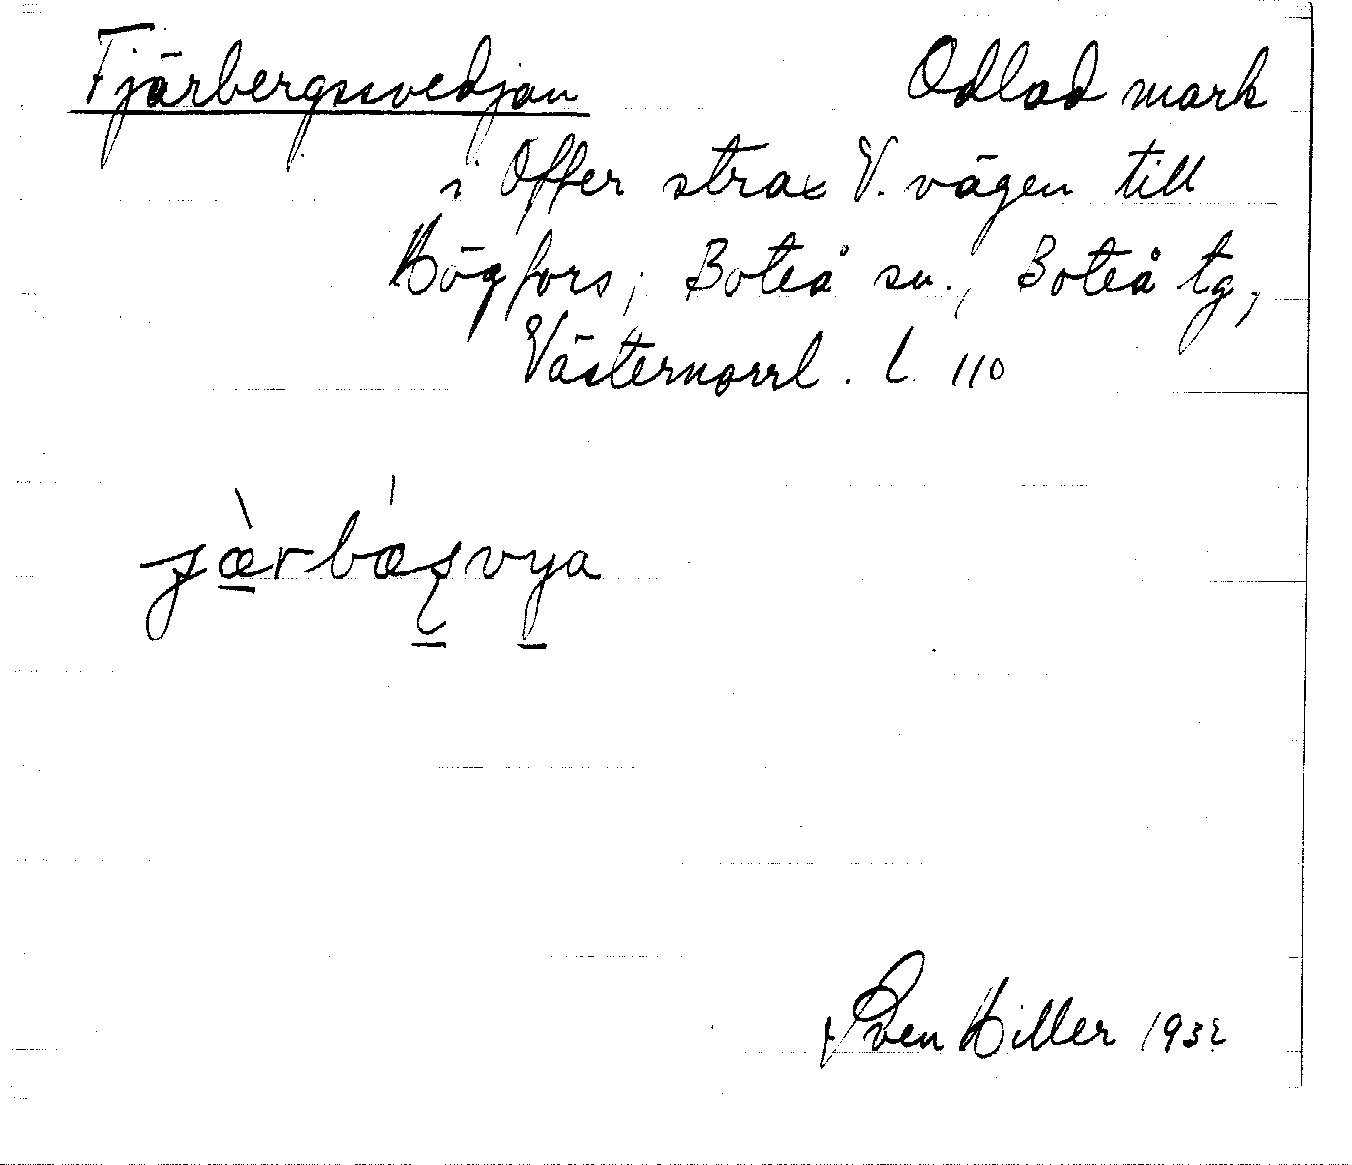 Fjärbergssvedjan Odlad mark
i Offer strax V. vägen till
Högfors; Boteå sn., Boteå tg,
Västernorrl. l. 110
Sven Hiller 1932